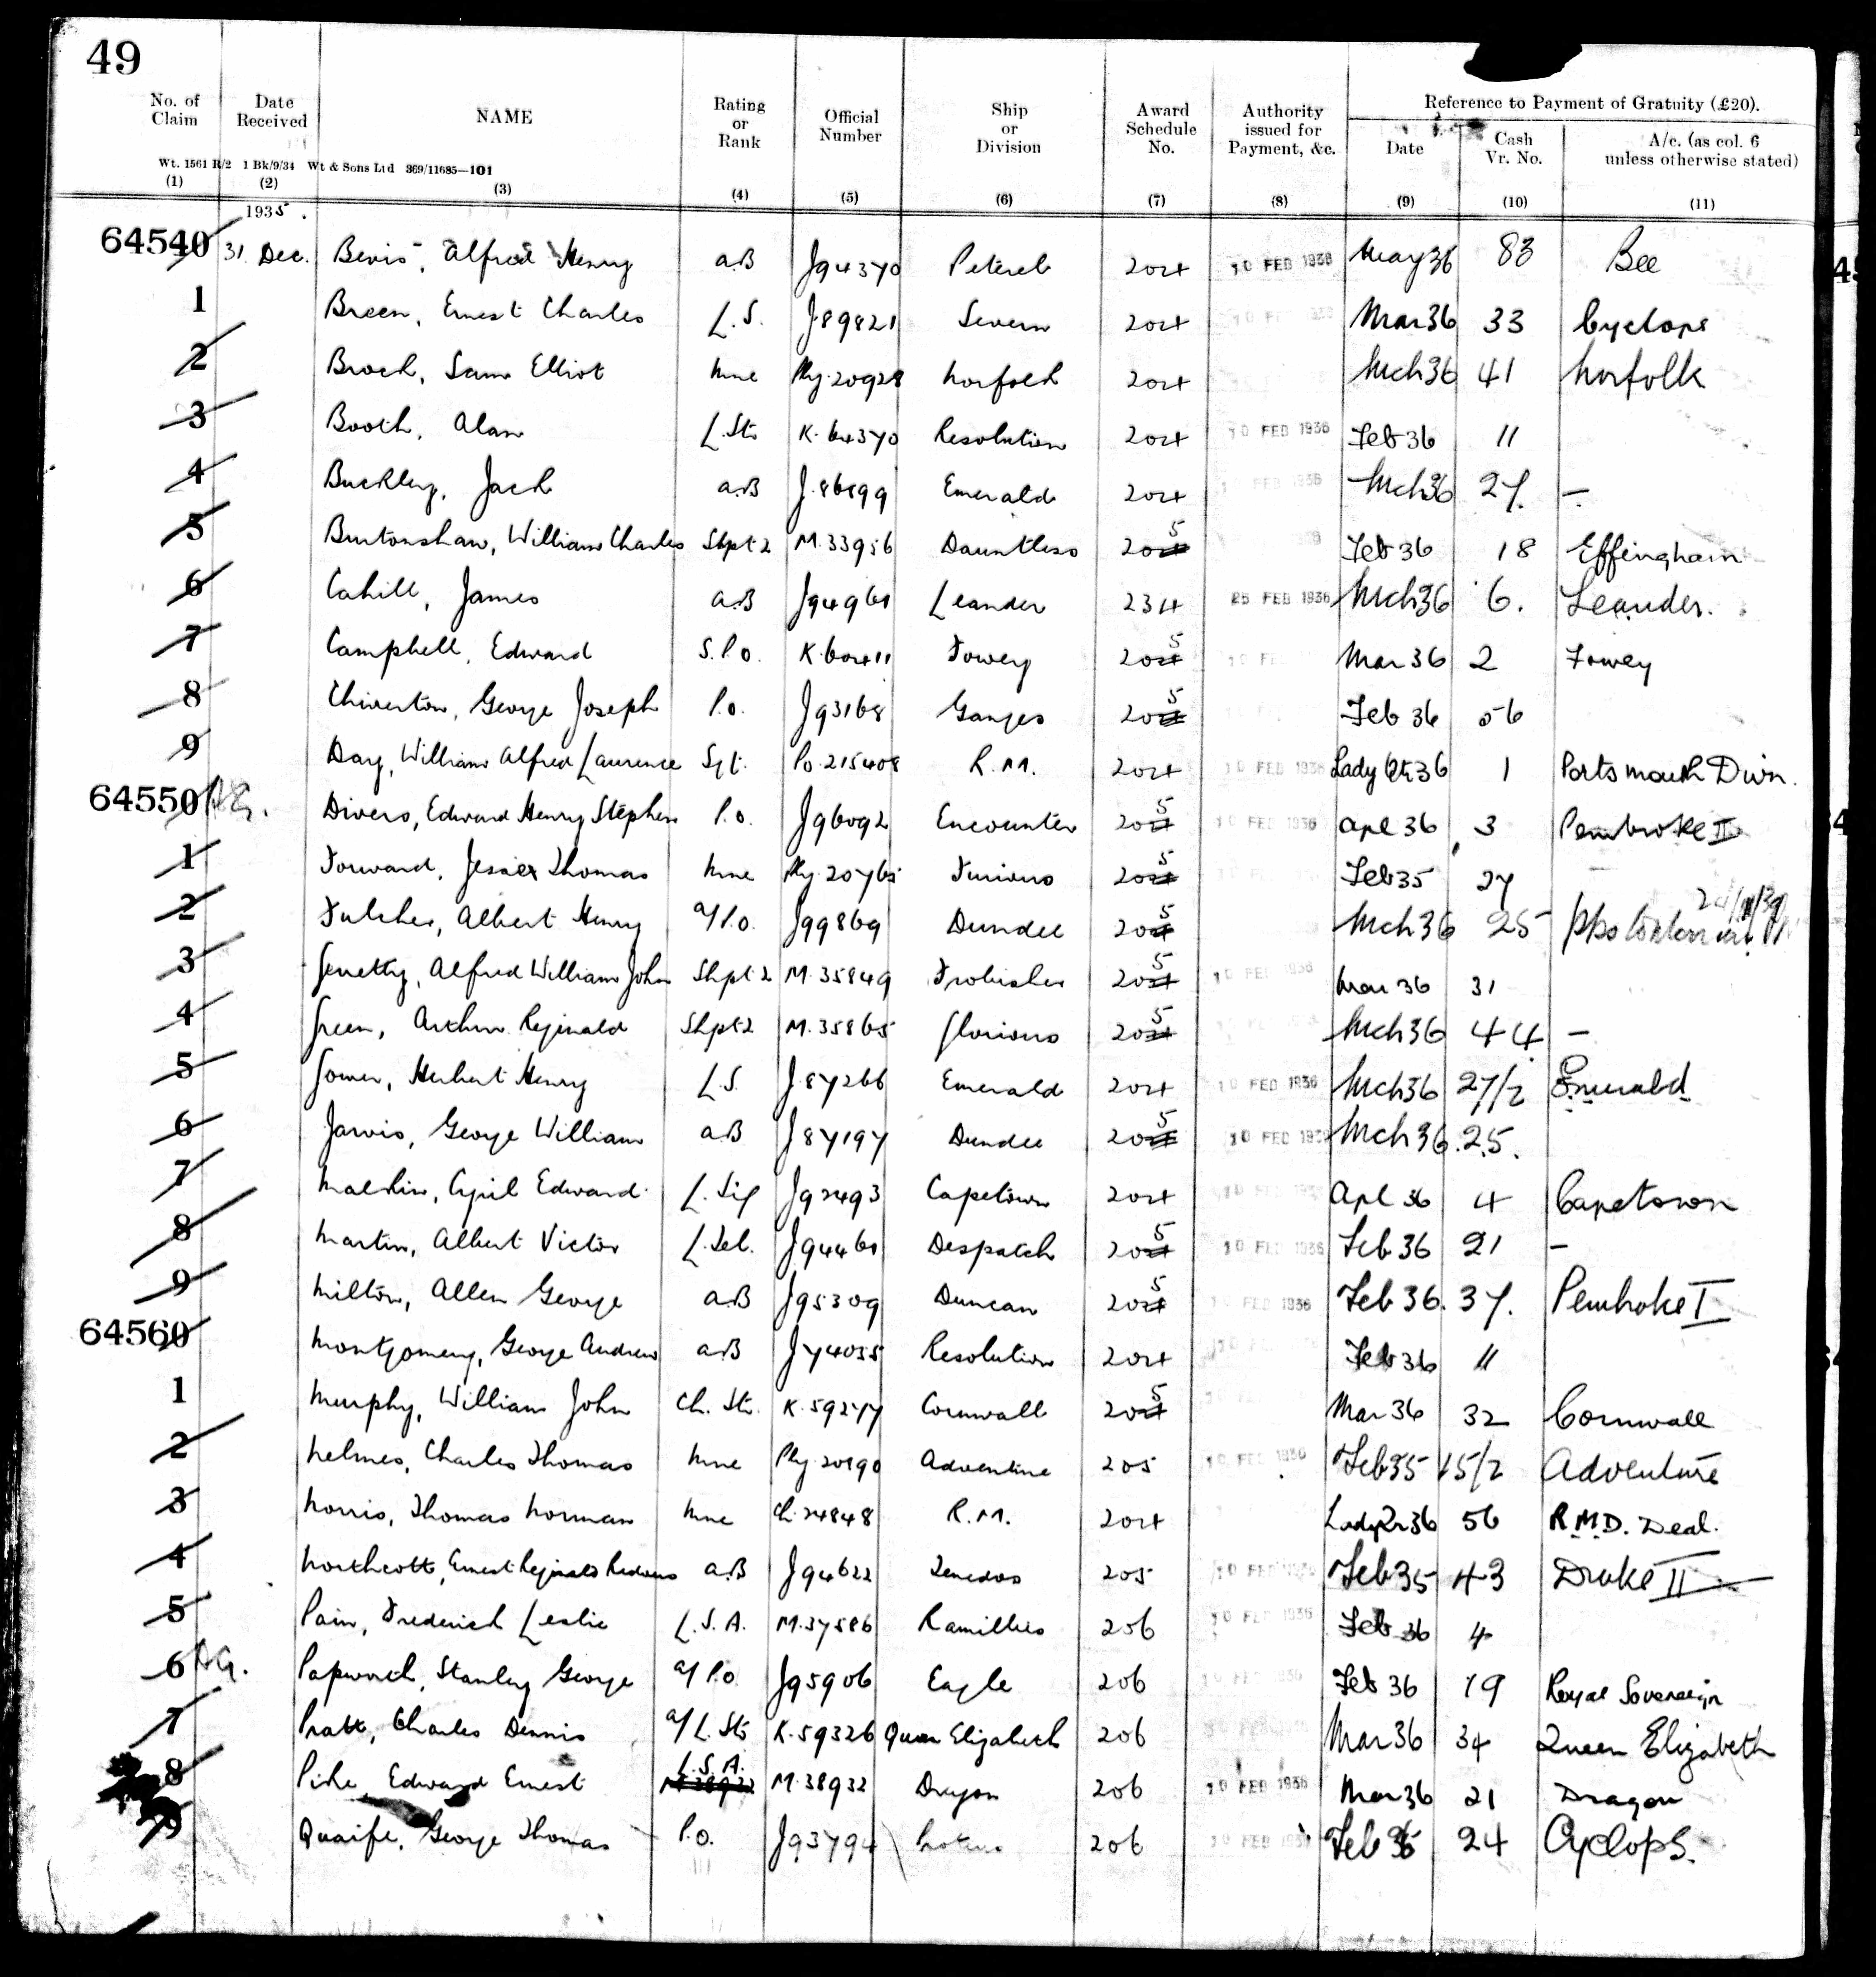 49
No. of Claim | Date Received | NAME | Rating or Rank | Official Number | Ship or Division | Award Schedule No. | Authority issued for Payment, &c. | Reference to Payment of Gratuity (£20).
Date | Cash Vr. No. | A/c. (as col. 6 unless otherwise stated)
Wt. 1561 R/2 1 Bk/9/34 Wt & Sons Ltd 369/11685—101
(1) (2) (3) (4) (5) (6) (7) (8) (9) (10) (11)
1935.
64540 31 Dec. Bevis, Alfred Henry a.B J94370 Peterel 204 10 FEB 1936 May 36 83 Bee
1 Breen, Ernest Charles L.S. J89821 Severn 204 Mar 36 33 Cyclops
2 Broch, Sam Elliot Mne Ply.20928 Norfolk 204 Mch 36 41 Norfolk
3 Booth, Alan L.Sto K.64370 Resolution 204 10 FEB 1936 Feb 36 11
4 Buckley, Jack a.B J.86899 Emerald 204 Mch 36 27. —
5 Burtonshaw, William Charles Shpt 2 M.33956 Dauntless 205 Feb 36 18 Effingham
6 Cahill, James a.B J94961 Leander 234 25 FEB 1936 Mch 36 6. Leander.
7 Campbell, Edward S.P.O. K.60411 Fowey 205 Mar 36 2 Fowey
8 Chiverton, George Joseph P.O. J93168 Ganges 205 Feb 36 56
9 Day, William Alfred Laurence Sgt. Po.215408 R.M. 204 10 FEB 1936 Lady Qtr 36 1 Portsmouth Divn.
64550 Divers, Edward Henry Stephen P.O. J96092 Encounter 205 10 FEB 1936 Apl 36 3 Pembroke II
1 Forward, Jesse Thomas Mne Ply.20765 Furious 205 Feb 35 27
2 Fulcher, Albert Henry a/P.O. J99869 Dundee 205 Mch 36 25
3 Genetty, Alfred William John Shpt 2 M.35849 Frobisher 205 10 FEB 1936 Mar 36 31
4 Green, Arthur Reginald Shpt 2 M.35865 Glorious 205 Mch 36 44 —
5 Gower, Herbert Henry L.S. J.87266 Emerald 204 10 FEB 1936 Mch 36 27/2 Emerald
6 Jarvis, George William a.B J87197 Dundee 205 10 FEB 193 Mch 36. 25.
7 Cyril Edward L.Sig J92493 Capetown 204 Apl 36 4 Capetown
8 Martin, Albert Victor L.Tel. J94461 Despatch 205 10 FEB 1936 Feb 36 21 —
9 Milton, Allen George a.B J95309 Duncan 205 10 FEB 1936 Feb 36. 37. Pembroke I
64560 Montgomery, George Andrew a.B J74035 Resolution 204 Feb 36 11
1 Murphy, William John Ch. Sto. K.59277 Cornwall 205 Mar 36 32 Cornwall
2 Nelmes, Charles Thomas Mne Ply.20190 Adventure 205 10 FEB 1936 Feb 35 15/2 Adventure
3 Norris, Thomas Norman Mne Ch.24848 R.M. 204 Lady Qr 36 56 R.M.D. Deal.
4 Northcott, Ernest Reginald a.B J94622 Tenedos 205 10 FEB 1936 Feb 35 43 Drake II
5 Pain, Frederick Leslie L.S.A. M.37586 Ramillies 206 10 FEB 1936 Feb 36 4
6 Papworth, Stanley George a/P.O. J95906 Eagle 206 Feb 36 19 Royal Sovereign
7 Pratt, Charles Dennis a/L.Sto K.59326 Queen Elizabeth 206 Mar 36 34 Queen Elizabeth
8 Pike, Edward Ernest L.S.A. M.38932 Dragon 206 10 FEB 1936 Mar 36 21 Dragon
9 Quaife, George Thomas P.O. J93794 206 10 FEB Feb 36 24 Cyclops.